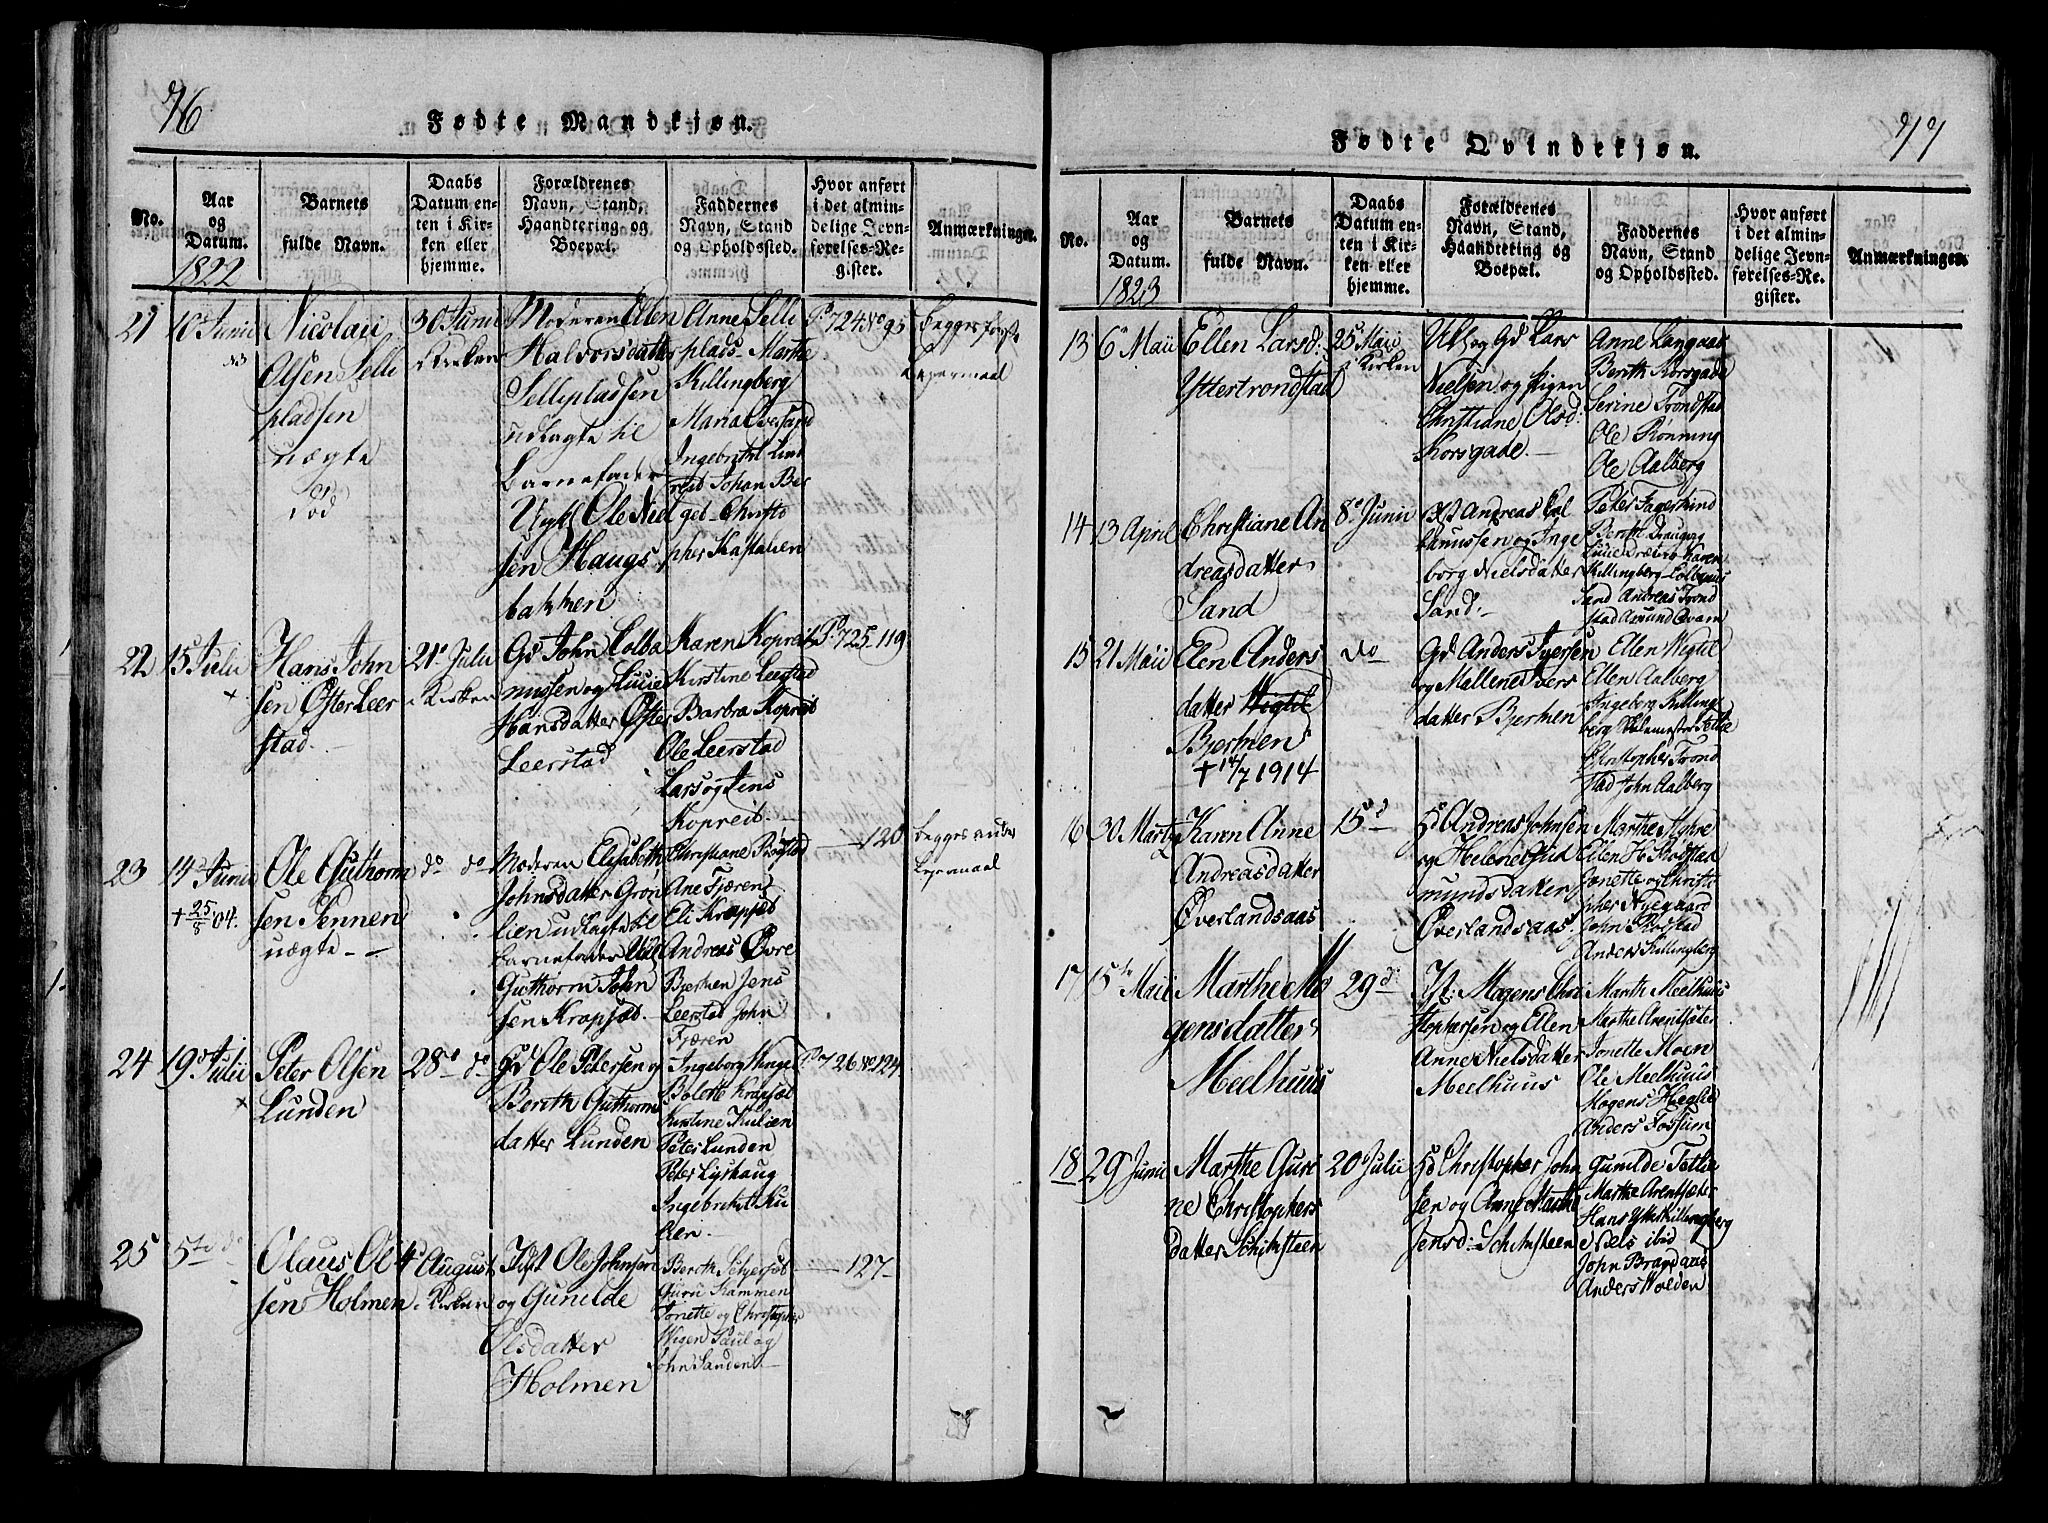 76
Fødte Mandkjøn.
No.
Aar
og
Datum.
1822
Barnets
fulde Navn.
Daabs
Datum en-
ten i Kir-
ken eller
hjemme.
Forældrenes
Navn, Stand,
Haandtering og
Boepæl.
Faddernes
Navn, Stand
og Opholdssted.
Hvor anført
i det almin-
delige Jevn-
førelses-Re-
gister.
Anmærkninger.
21
10 Junii
Nicolaii
Olsen Selli
pladsen
uægte
død
30 Junii
i Kirken
Moderen Ellen
Halvorsdatter
Selliepladsen
udlagte til
Barnefader
Ungkl Ole Niel
sen Haugs
bakken
Anne Selli
plads Marthe
Killingberg
Maria Oversand
Ingebrikt Lund
Johan Ber
get Christo
pher Kastalien
P 724 No 95
Begges første
Leiermaal
22
15 Julii
Hans John
sen Øster Leer
stad.
21 Julii
i Kirken
Gd John Colba
nussen og Lucie
Hansdatter Øster
Leerstad
Karen Kopreit
Kirstine Leerstad
Barbra Kopreit
Ole Leerstad
Lars og Jens
Kopreit.
P 725. 119
23
14 Junii
+ 25/5 04.
Ole Guthorm
sen Fennen
uægte
do do
Moderen Elisabeth
Johnsdatter Grøn
lien udlagte til
Barnefader
Guthorm John
sen Krapsæd.
Christiane Røstad
Ane Fjæren
Eli Krapsæt
Andreas Øvre
Bjerken Jens
Leerstad John
Fjæren
120
begges andet
Leiermaal
24
19 Julii
Peter Olsen
Lunden
28 do
Gd Ole Petersen og
Berith Guthorms
datter Lunden
Ingeborg Vinge
Bolette Krapsæt
Kirstine Kulien
Peter Lunden
Peter Lyshaug
Ingebrikt Ku
lien.
P 726 No 124
25
5te do
Claus Ol
sen Holmen
4 August
i Kirken
Inst Ole Johnsen
og Gunilde
Olsdatter
Holmen
Berith
Guru Kammen
Jonette og Christopher
Wigen Paul og
John Sanden.
127
77
Fødte Qvindekjøn.
No.
Aar
og
Datum.
1823
Barnets
fulde Navn.
Daabs
Datum en-
ten i Kir-
ken eller
hjemme.
Forældrenes
Navn, Stand,
Haandtering og
Boepæl.
Faddernes
Navn, Stand
og Opholdssted.
Hvor anført
i det almin-
delige Jevn-
førelses-Re-
gister.
Anmærkninger.
13
6 Maii
Ellen Larsd:
Yttertrondstad
25 Maii
i Kirken
og Gd Lars
Nielsen og Pigen
Christiane Olsd:
Korsgade.
Anne Langaas
Berith Korsgade
Serine Trondstad
Ole Rønning
Ole Aalberg
14
13 April
Christiane An
dreasdatter
Sand
8 Junii
Andreas Col
banussen og Inge
borg Nielsdatter
Sand.
Peter Fagerstrind
Berith Draugag
Lucie Dræbro Karen
Killingberg Colbanus
Sand Andreas Trond
stad Amund Qvam
15
21 Maii
Elen Anders
datter Wigtil
Bjerken
+ 14/7 1914
do
Gd Anders Iversen
og Mallene Ivers
datter Bjerken
Ellen Wigtil
Ellen Aalberg
Ingeborg Killing
berg
Christopher Trond
stad John Aalberg
16
30 Marty
Karen Anne
Andreasdatter
Øverlandsaas
15 d
Gd Andreas Johnsen
og Helene Gud
mundsdatter
Øverlandsaas.
Marthe Myhre
Ellen Rødstad
Jonette og Christo
pher Nygaard
John Røstad
Anders Killingberg
17
15de Maii
Marthe Mo
gensdatter
Meelhuus
29 d
Mogens Chri
stophersen og Ellen
Anne Nielsdatter
Meelhuus
Marth Meelhuus
Marthe Arentsæter
Jonette Moen
Ole Meelhuus
Mogens Heglie
Anders Fossum
18
29 Junii
Marthe Guri
ne Christophers
datter Schinsteen
20 Julii
Gd Christopher John
sen og Anne Marthe
Jensd: Schinsteen
Gunilde Tetlie
Marthe Arentsæter
Hans Ytter Killingberg
Niels ibid
John Brandaas
Anders Wolden